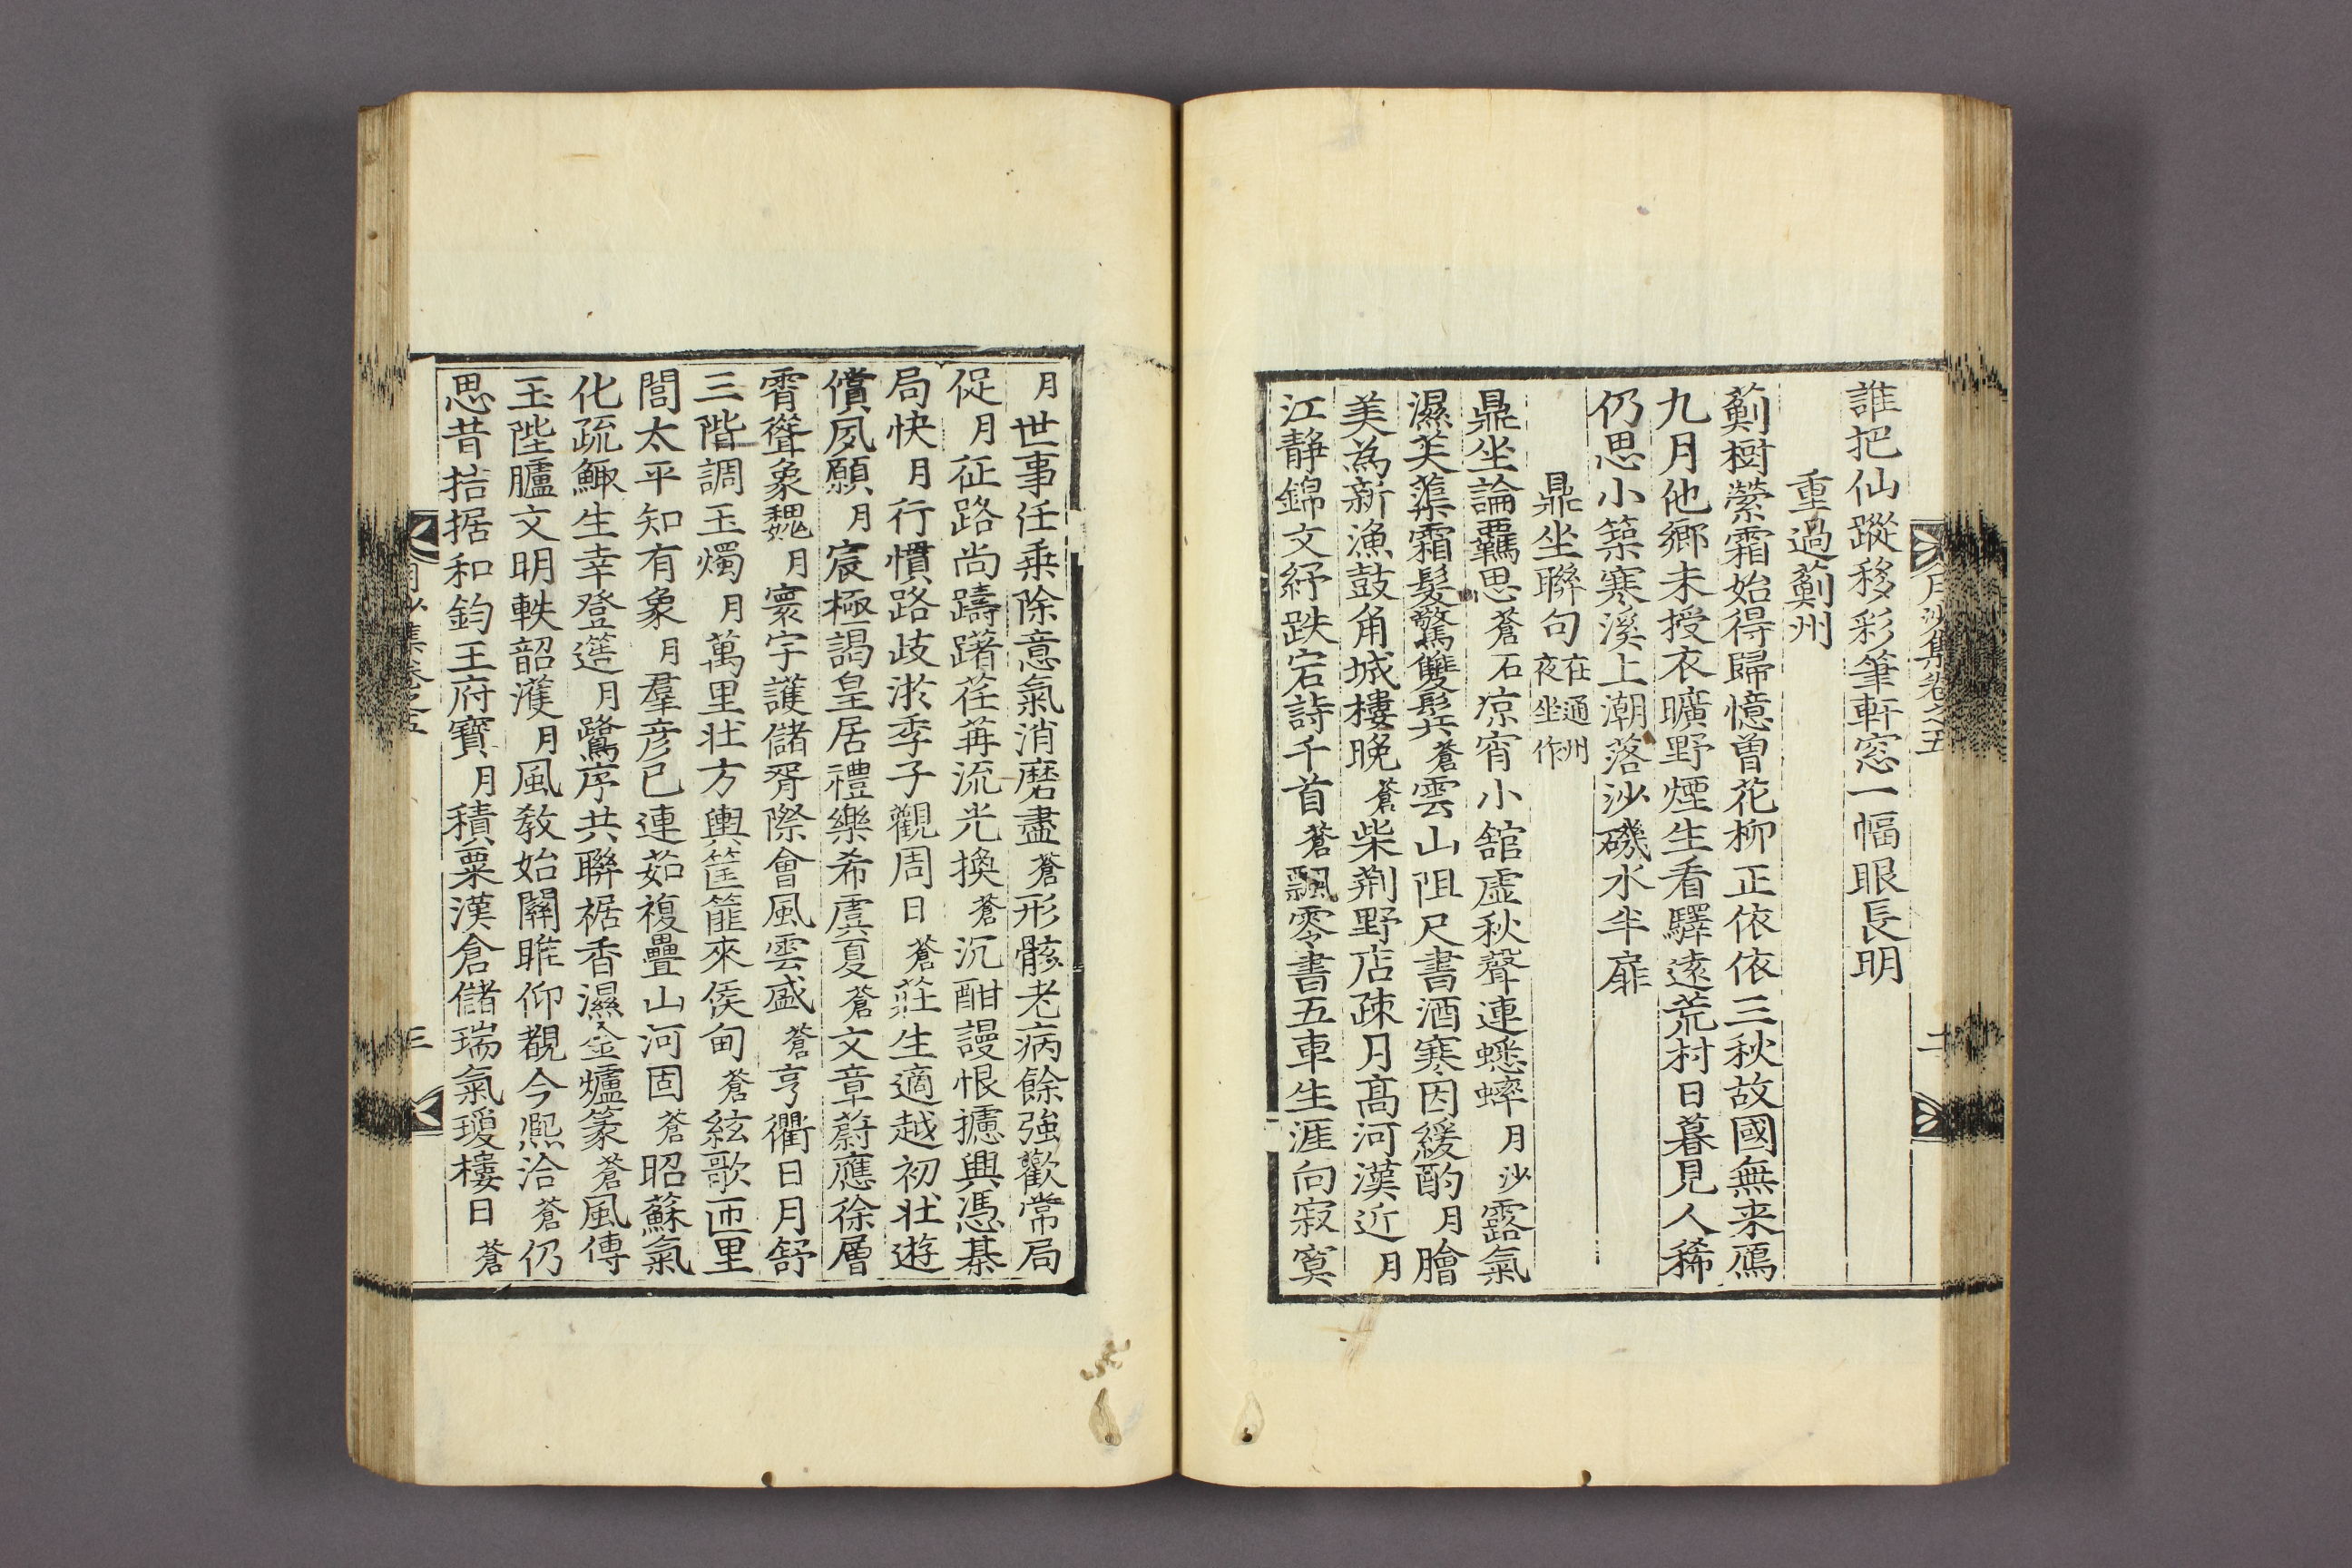 月沙集卷之五
誰把仙蹤移彩筆軒窓一幅眼長明
重過薊州
薊樹縈霜始得歸憶曾花柳正依依三秋故國無来鴈
九月他鄉未授衣曠野煙生看驛遠荒村日暮見人稀
仍思小築寒溪上潮落沙磯水半扉
鼎坐聯句在通州夜坐作
鼎坐論羈思蒼石凉宵小舘虛秋聲連蟋蟀月沙露氣
濕芙蕖霜髮驚雙鬂蒼雲山阻尺書酒寒因緩酌月膾
美為新漁鼓角城樓晚蒼柴荆野店疎月高河漢近月
江靜錦文紓跌宕詩千首蒼飄零書五車生涯向寂寞
月世事任乘除意氣消磨盡蒼形骸老病餘強歡常局
促月征路尚躊躇荏苒流光換蒼沉酣謾恨攄興憑棊
局快月行慣路歧淤季子觀周日蒼莊生適越初壯遊
償夙願月宸極謁皇居禮樂希虞夏蒼文章蔚應徐層
霄聳象魏月寰宇護儲胥際會風雲盛蒼亨衢日月舒
三階調玉燭月萬里壯方輿筐篚來侯甸蒼絃歌匝里
閭太平知有象月羣彦已連茹複疊山河固蒼昭蘇氣
化疏鯫生幸登筵月鷺序共聯裾香濕金爐篆蒼風傳
玉陛臚文明軼韶濩月風教始關雎仰覩今熈洽蒼仍
思昔拮据和鈞王府寶月積粟漢倉儲瑞氣璦樓日蒼
月沙集卷之五
三